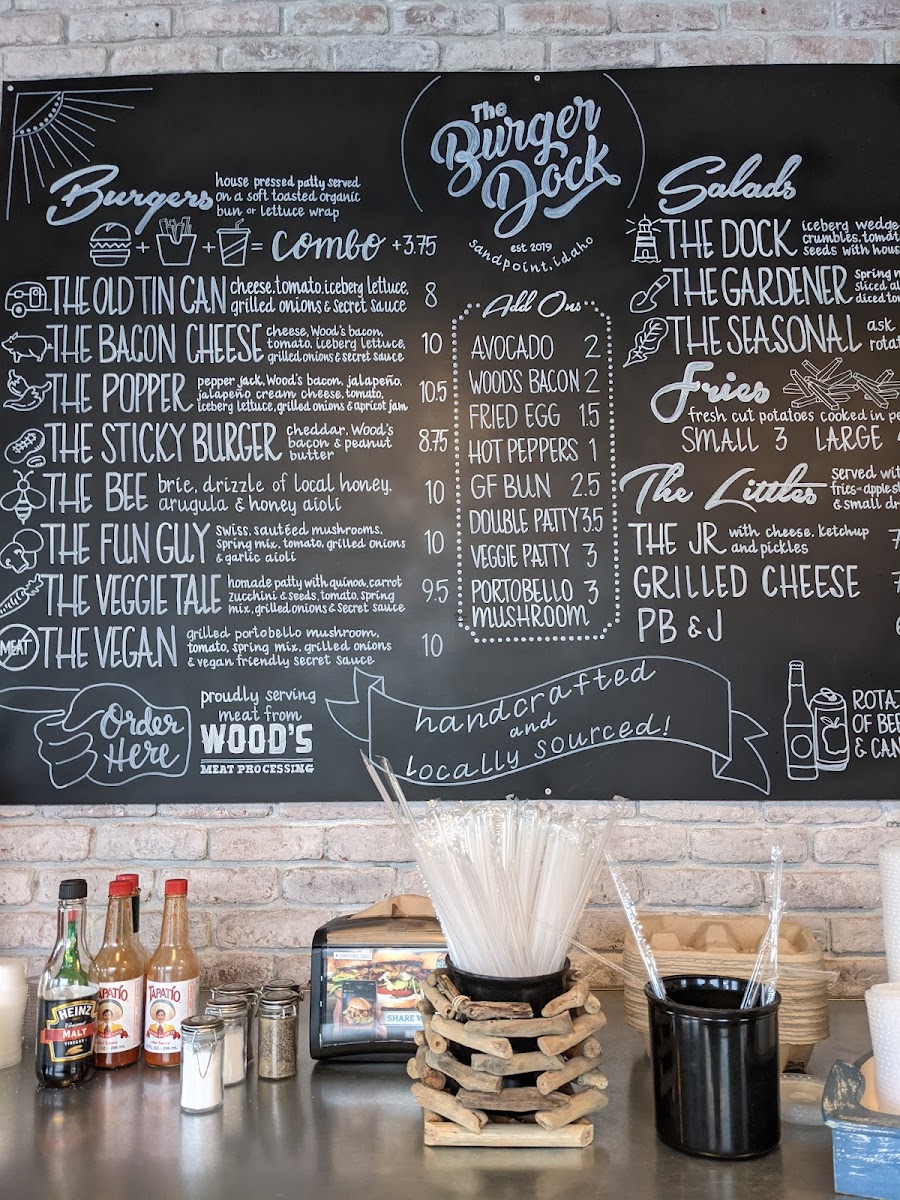 The
Burger
Dock
est 2019
Sandpoint, idaho
Burgers
house pressed patty served
on a soft toasted organic
bun or lettuce wrap
+ + = combo +3.75
THE OLD TIN CAN cheese, tomato, iceberg lettuce, 8
grilled onions & secret sauce
THE BACON CHEESE cheese, Wood's bacon, 10
tomato, iceberg lettuce,
grilled onions & secret sauce
THE POPPER pepper jack, Wood's bacon, jalapeño, 10.5
jalapeño cream cheese, tomato,
iceberg lettuce, grilled onions & apricot jam
THE STICKY BURGER cheddar, Wood's 8.75
bacon & peanut
butter
THE BEE brie, drizzle of local honey, 10
arugula & honey aioli
THE FUN GUY swiss, sautéed mushrooms, 10
spring mix, tomato, grilled onions
& garlic aioli
THE VEGGIE TALE homade patty with quinoa, carrot 9.5
zucchini & seeds, tomato, spring
mix, grilled onions & secret sauce
MEAT THE VEGAN grilled portobello mushroom, 10
tomato, spring mix, grilled onions
& vegan friendly secret sauce
Order
Here
proudly serving
meat from
WOOD'S
MEAT PROCESSING
Add Ons
AVOCADO 2
WOOD'S BACON 2
FRIED EGG 1.5
HOT PEPPERS 1
GF BUN 2.5
DOUBLE PATTY 3.5
VEGGIE PATTY 3
PORTOBELLO 3
MUSHROOM
handcrafted
and
Locally sourced!
Salads
THE DOCK iceberg wedge
crumbles, tomat
seeds with hous
THE GARDENER spring m
sliced al
diced to
THE SEASONAL ask
rotat
Fries
fresh cut potatoes cooked in pe
SMALL 3 LARGE
The Littles
served wit
fries-apples
& small dr
THE JR with cheese, ketchup 7
and pickles
GRILLED CHEESE 7
PB & J
ROTA
OF BEE
& CAN
HEINZ
MALT
VINEGAR
TAPATÍO
TAPATÍO
SHARE